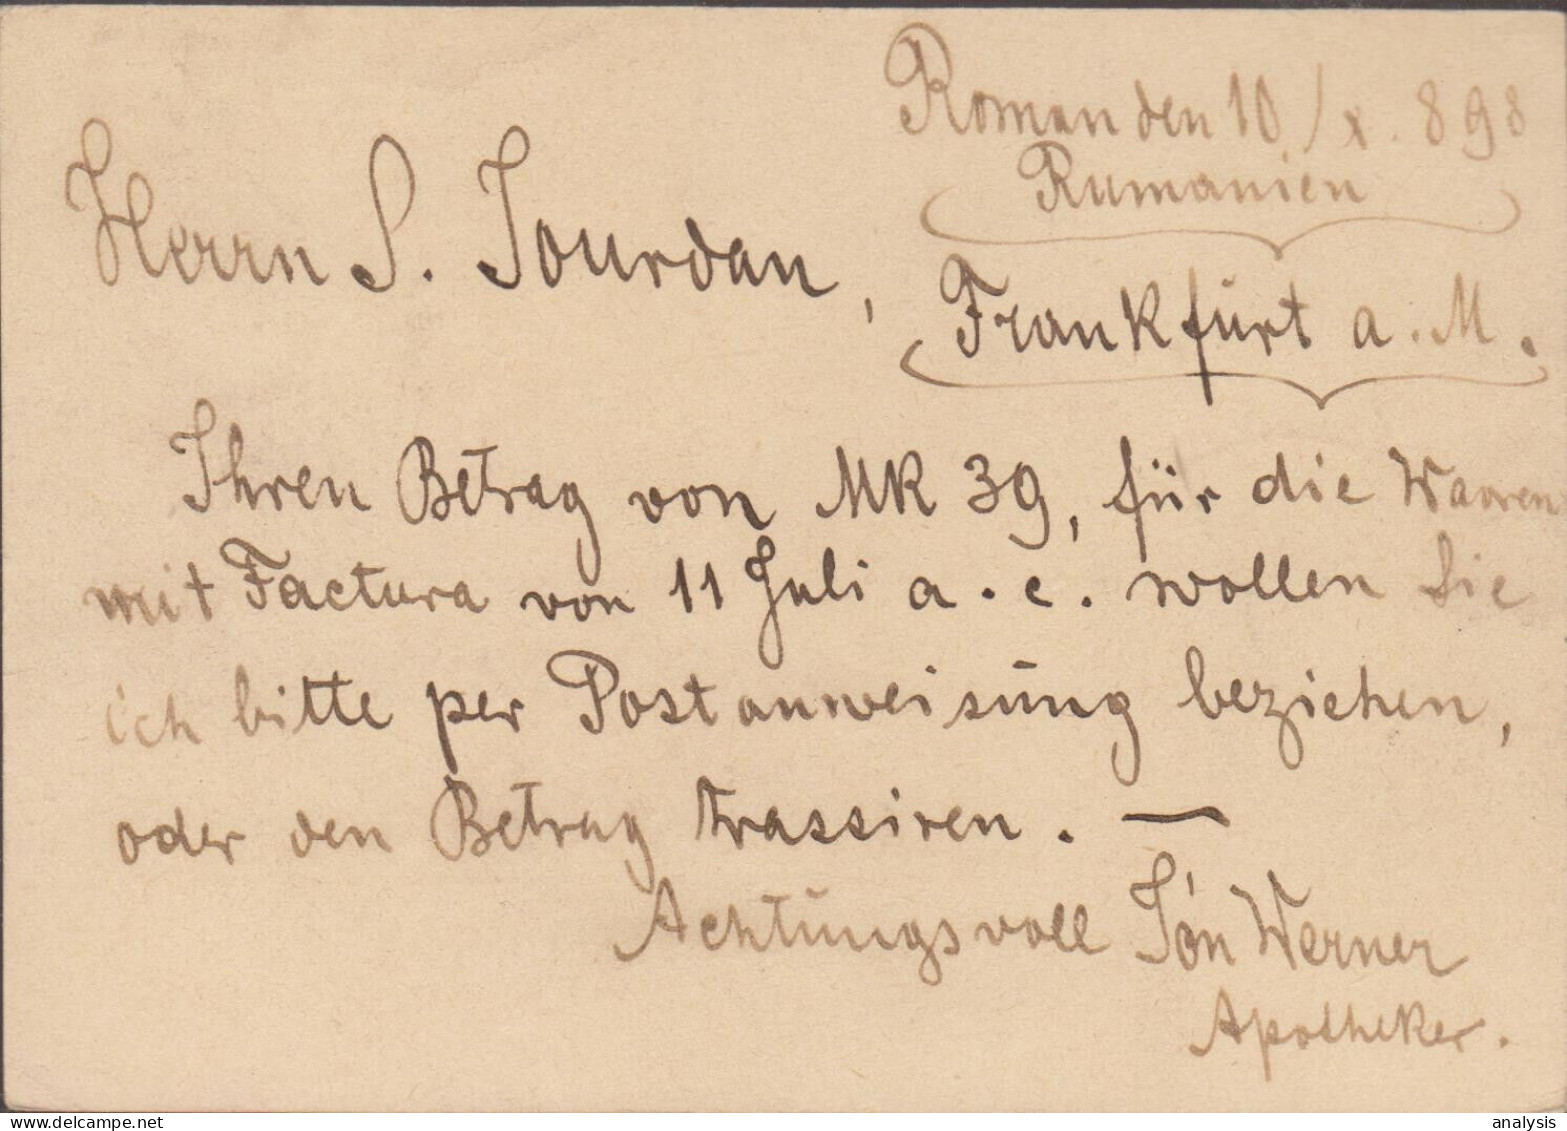 Roman den 10/x. 898
Rumanien
Herrn S. Jourdan,
Frankfurt a. M.
Ihren Betrag von MK 39, für die Waaren
mit Factura von 11 Juli a. c. wollen Sie
ich bitte per Postanweisung beziehen,
oder den Betrag trassiren. —
Achtungsvoll Ión Werner
Apotheker.
delcampe.net
analysis